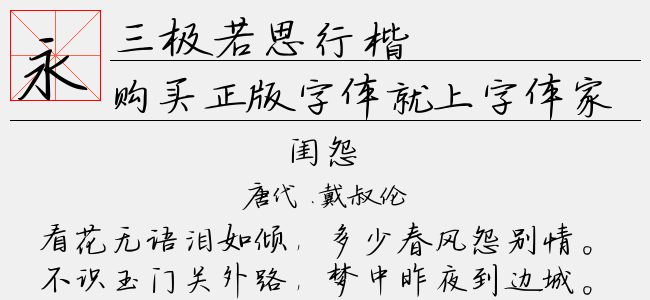 永
三极若思行楷
购买正版字体就上字体家
闺怨
唐代.戴叔伦
看花无语泪如倾，多少春风怨别情。
不识玉门关外路，梦中昨夜到边城。